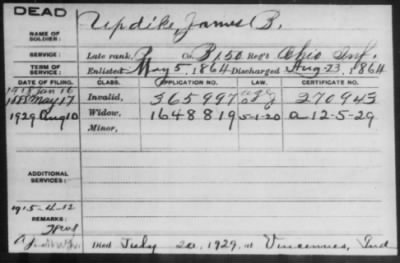 DEAD
NAME OF SOLDIER: Updike, James B.
SERVICE: Late rank, P Co. B 150 Reg't Ohio Inf.
TERM OF SERVICE: Enlisted May 5, 1864 Discharged Aug. 23, 1864
DATE OF FILING. CLASS. APPLICATION NO. LAW. CERTIFICATE NO.
Jan 16
May 17 Invalid, 365997 270943
1929 Aug 10 Widow, 1648819 5-1-20 a-12-5-29
Minor,
ADDITIONAL SERVICES:
1915-4-12
REMARKS:
Died July 20, 1929, at Vincennes, Ind